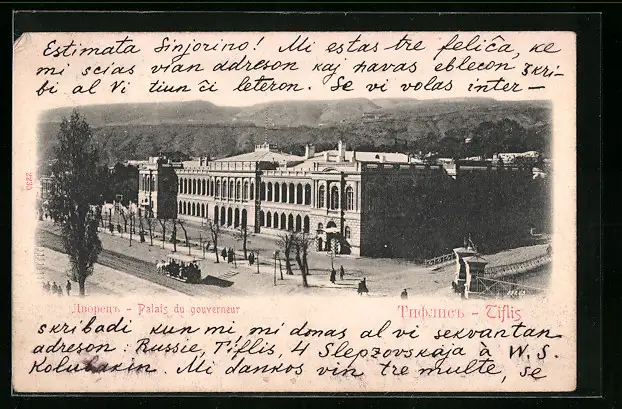 Estimata Sinjorino! Mi estas tre feliĉa, ke
mi scias vian adreson kaj havas eblecon skri-
bi al Vi tiun ĉi leteron. Se vi volas inter-
2235
Дворецъ - Palais du gouverneur
Тифлисъ - Tiflis
skribadi kun mi, mi donas al vi sekvantan
adreson: Russie, Tiflis, 4 Slepzovskaja à W. S.
Kolubakin. Mi dankos vin tre multe, se